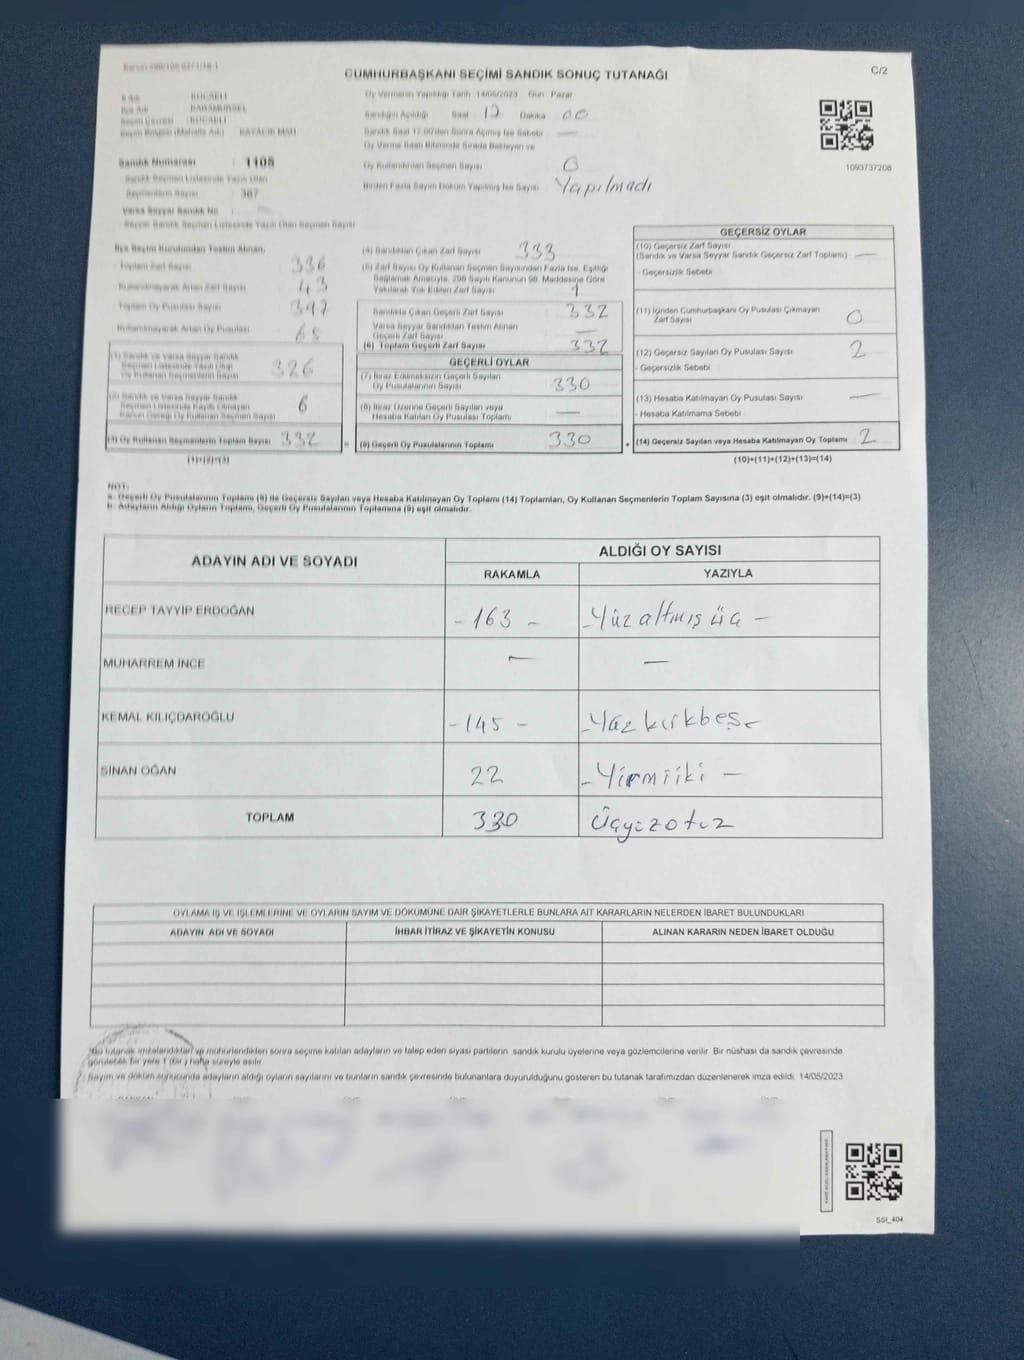 CUMHURBAŞKANI SEÇİMİ SANDIK SONUÇ TUTANAĞI
C/2
İli Adı : KOCAELİ
İlçe Adı : KARAMÜRSEL
Seçim Çevresi : KOCAELİ
Seçim Bölgesi (Mahalle Adı) : KAYACIK MAH
Sandık Numarası : 1105
Sandık Seçmen Listesinde Yazılı Olan
Seçmenlerin Sayısı : 367
Varsa Seyyar Sandık No
Seyyar Sandık Seçmen Listesinde Yazılı Olan Seçmen Sayısı
Oy Vermenin Yapıldığı Tarih 14/05/2023 Gün Pazar
Sandığın Açıldığı Saat 17 Dakika 00
Sandık Saat 17.00'den Sonra Açılmış İse Sebebi —
Oy Verme Saati Bitiminde Sırada Bekleyen ve
Oy Kullandırılan Seçmen Sayısı 0
Birden Fazla Sayım Döküm Yapılmış İse Sayısı Yapılmadı
1093737208
İlçe Seçim Kurulundan Teslim Alınan;
Toplam Zarf Sayısı 336
Kullanılmayarak Artan Zarf Sayısı 43
Toplam Oy Pusulası Sayısı 397
Kullanılmayarak Artan Oy Pusulası 65
(1) Sandık ve Varsa Seyyar Sandık
Seçmen Listesinde Yazılı Olup
Oy Kullanan Seçmenlerin Sayısı 326
(2) Sandık ve Varsa Seyyar Sandık
Seçmen Listesinde Kayıtlı Olmayan
Kanun Gereği Oy Kullanan Seçmen Sayısı 6
(3) Oy Kullanan Seçmenlerin Toplam Sayısı 332
(1)+(2)=(3)
(4) Sandıktan Çıkan Zarf Sayısı 333
(5) Zarf Sayısı Oy Kullanan Seçmen Sayısından Fazla İse, Eşitliği
Sağlamak Amacıyla, 298 Sayılı Kanunun 98. Maddesine Göre
Yakılarak Yok Edilen Zarf Sayısı 1
Sandıkta Çıkan Geçerli Zarf Sayısı 332
Varsa Seyyar Sandıktan Teslim Alınan
Geçerli Zarf Sayısı —
(6) Toplam Geçerli Zarf Sayısı 332
GEÇERLİ OYLAR
(7) İtiraz Edilmeksizin Geçerli Sayılan
Oy Pusulalarının Sayısı 330
(8) İtiraz Üzerine Geçerli Sayılan veya
Hesaba Katılan Oy Pusulası Toplamı —
(9) Geçerli Oy Pusulalarının Toplamı 330
GEÇERSİZ OYLAR
(10) Geçersiz Zarf Sayısı
(Sandık ve Varsa Seyyar Sandık Geçersiz Zarf Toplamı) —
- Geçersizlik Sebebi
(11) İçinden Cumhurbaşkanı Oy Pusulası Çıkmayan
Zarf Sayısı 0
(12) Geçersiz Sayılan Oy Pusulası Sayısı 2
- Geçersizlik Sebebi
(13) Hesaba Katılmayan Oy Pusulası Sayısı —
- Hesaba Katılmama Sebebi
(14) Geçersiz Sayılan veya Hesaba Katılmayan Oy Toplamı 2
(10)+(11)+(12)+(13)=(14)
NOT:
a- Geçerli Oy Pusulalarının Toplamı (9) ile Geçersiz Sayılan veya Hesaba Katılmayan Oy Toplamı (14) Toplamları, Oy Kullanan Seçmenlerin Toplam Sayısına (3) eşit olmalıdır. (9)+(14)=(3)
b- Adayların Aldığı Oyların Toplamı, Geçerli Oy Pusulalarının Toplamına (9) eşit olmalıdır.
ADAYIN ADI VE SOYADI
ALDIĞI OY SAYISI
RAKAMLA YAZIYLA
RECEP TAYYİP ERDOĞAN - 163 - - Yüz altmış üç -
MUHARREM İNCE — —
KEMAL KILIÇDAROĞLU - 145 - - Yüz kırkbeş -
SİNAN OĞAN 22 - Yirmiiki -
TOPLAM 330 Üçyüzotuz
OYLAMA İŞ VE İŞLEMLERİNE VE OYLARIN SAYIM VE DÖKÜMÜNE DAİR ŞİKAYETLERLE BUNLARA AİT KARARLARIN NELERDEN İBARET BULUNDUKLARI
ADAYIN ADI VE SOYADI İHBAR İTİRAZ VE ŞİKAYETİN KONUSU ALINAN KARARIN NEDEN İBARET OLDUĞU
Bu tutanak imzalandıktan ve mühürlendikten sonra seçime katılan adayların ve talep eden siyasi partilerin sandık kurulu üyelerine veya gözlemcilerine verilir. Bir nüshası da sandık çevresinde
görülebilir bir yere 1 (bir) hafta süreyle asılır.
Sayım ve döküm sonucunda adayların aldığı oyların sayılarını ve bunların sandık çevresinde bulunanlara duyurulduğunu gösteren bu tutanak tarafımızdan düzenlenerek imza edildi. 14/05/2023
SSI_404